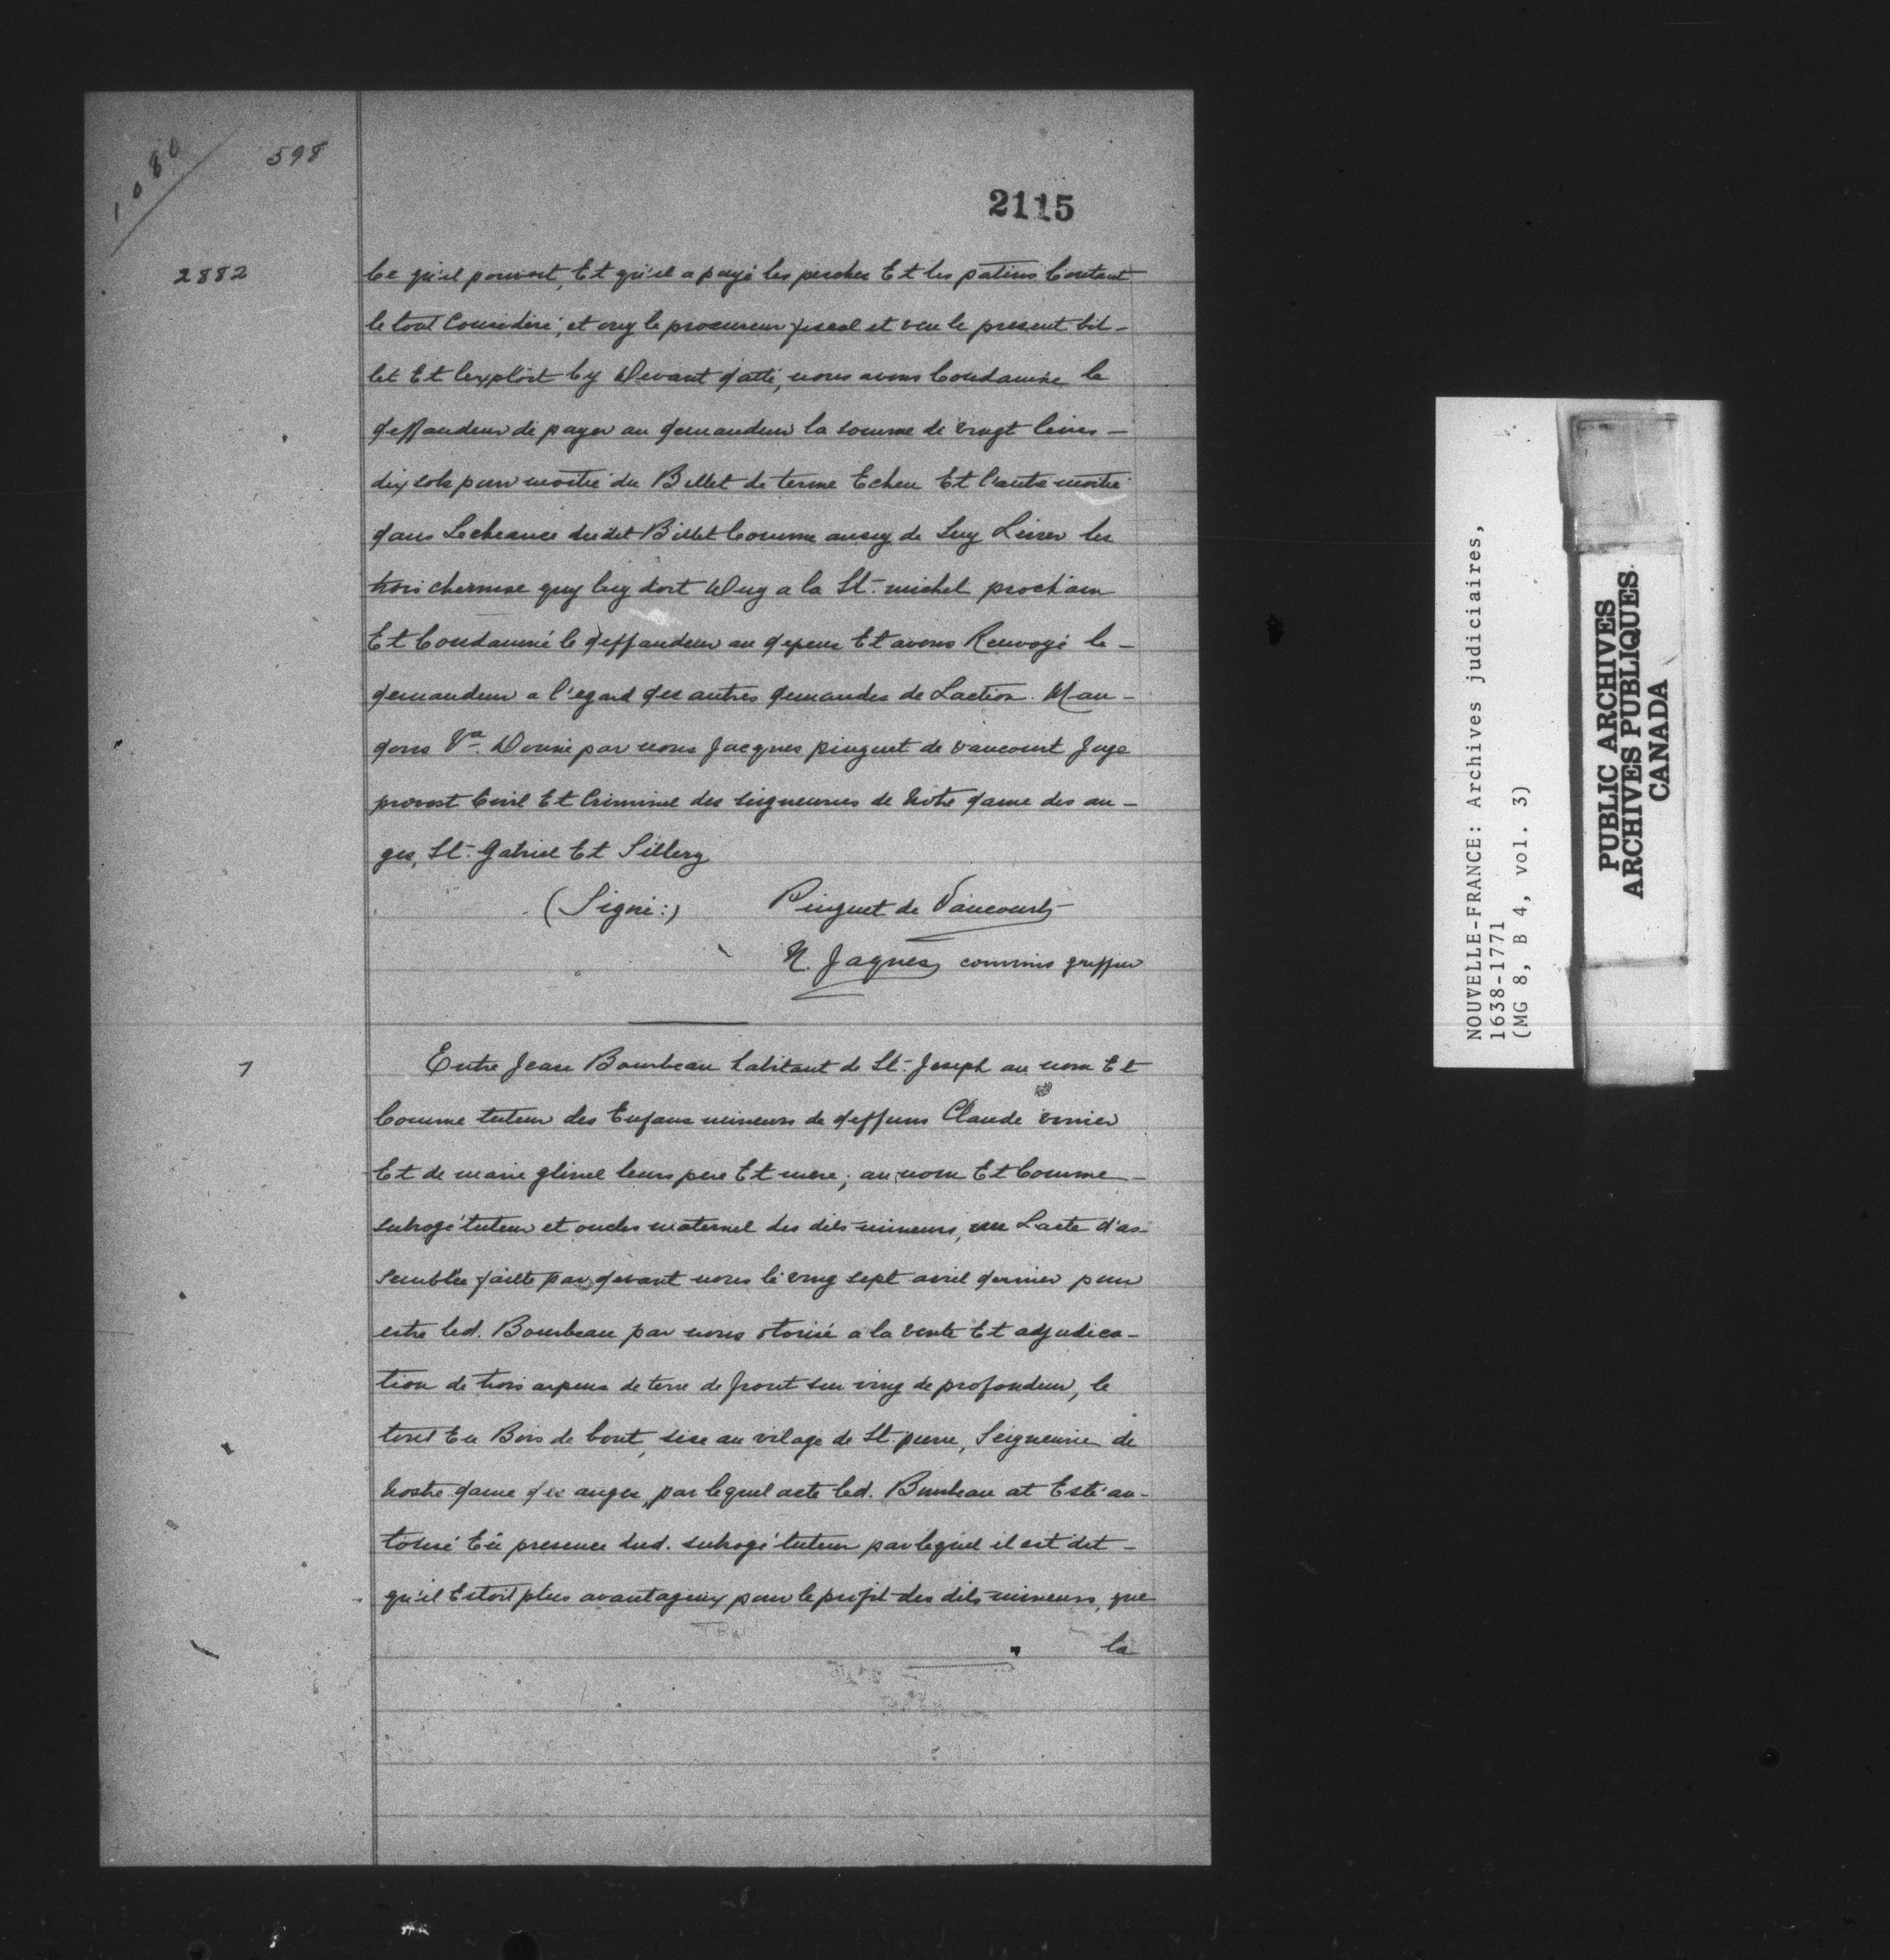 1080
598
2115
2882
Ce qu'il pouvoit, Et qu'il a payé les perches Et les patins Coutant
le tout Considéré, et ouy le procureur fiscal et veu le present bil-
let Et l'exploit Cy Devant datté, nous avons Condamné le
deffandeur de payer au demandeur la somme de vingt livres -
dix sols pour moitié du Billet de terme Echeu Et l'autre moitié
dans Lecheance dudit Billet Comme aussy de luy Livrer les
trois chemise quy luy doit Duy a la St. michel prochain
Et Condamné le deffandeur au depens Et avons Renvoyé le -
demandeur a l'egard des autres demandes de Laction. Man-
dons Va. Donné par nous Jacques pinguet de vaucourt Juge
provost Civil Et Criminel des seigneuries de Notre dame des an-
ges, St. Gabriel Et Sillery
(Signé:) Pinguet de Vaucourt
N. Jaques commis greffier
1
Entre Jean Bourbeau habitant de St. Joseph au nom Et
Comme tuteur des Enfans mineurs de deffuns Claude vivier
Et de marie glinel leurs pere Et mere; au nom Et Comme -
subrogé tuteur et oncles maternel des dits mineurs, veu Lacte d'as-
semblée faitte par devant nous le ving sept avril dernier pour
estre led. Bourbeau par nous otorisé a la vente Et adjudica-
tion de trois arpens de terre de front sur ving de profondeur, le
tout En Bois de bout, sise au vilage de St. pierre, Seigneurie de
nostre dame des anges, par lequel acte led. Bourbeau at Esté au-
torisé En presence dud. subrogé tuteur par lequel il est dit -
qu'il Estoit plus avantageux pour le profit des dits mineurs, que
la
NOUVELLE-FRANCE: Archives judiciaires,
1638-1771
(MG 8, B 4, vol. 3)
PUBLIC ARCHIVES
ARCHIVES PUBLIQUES
CANADA